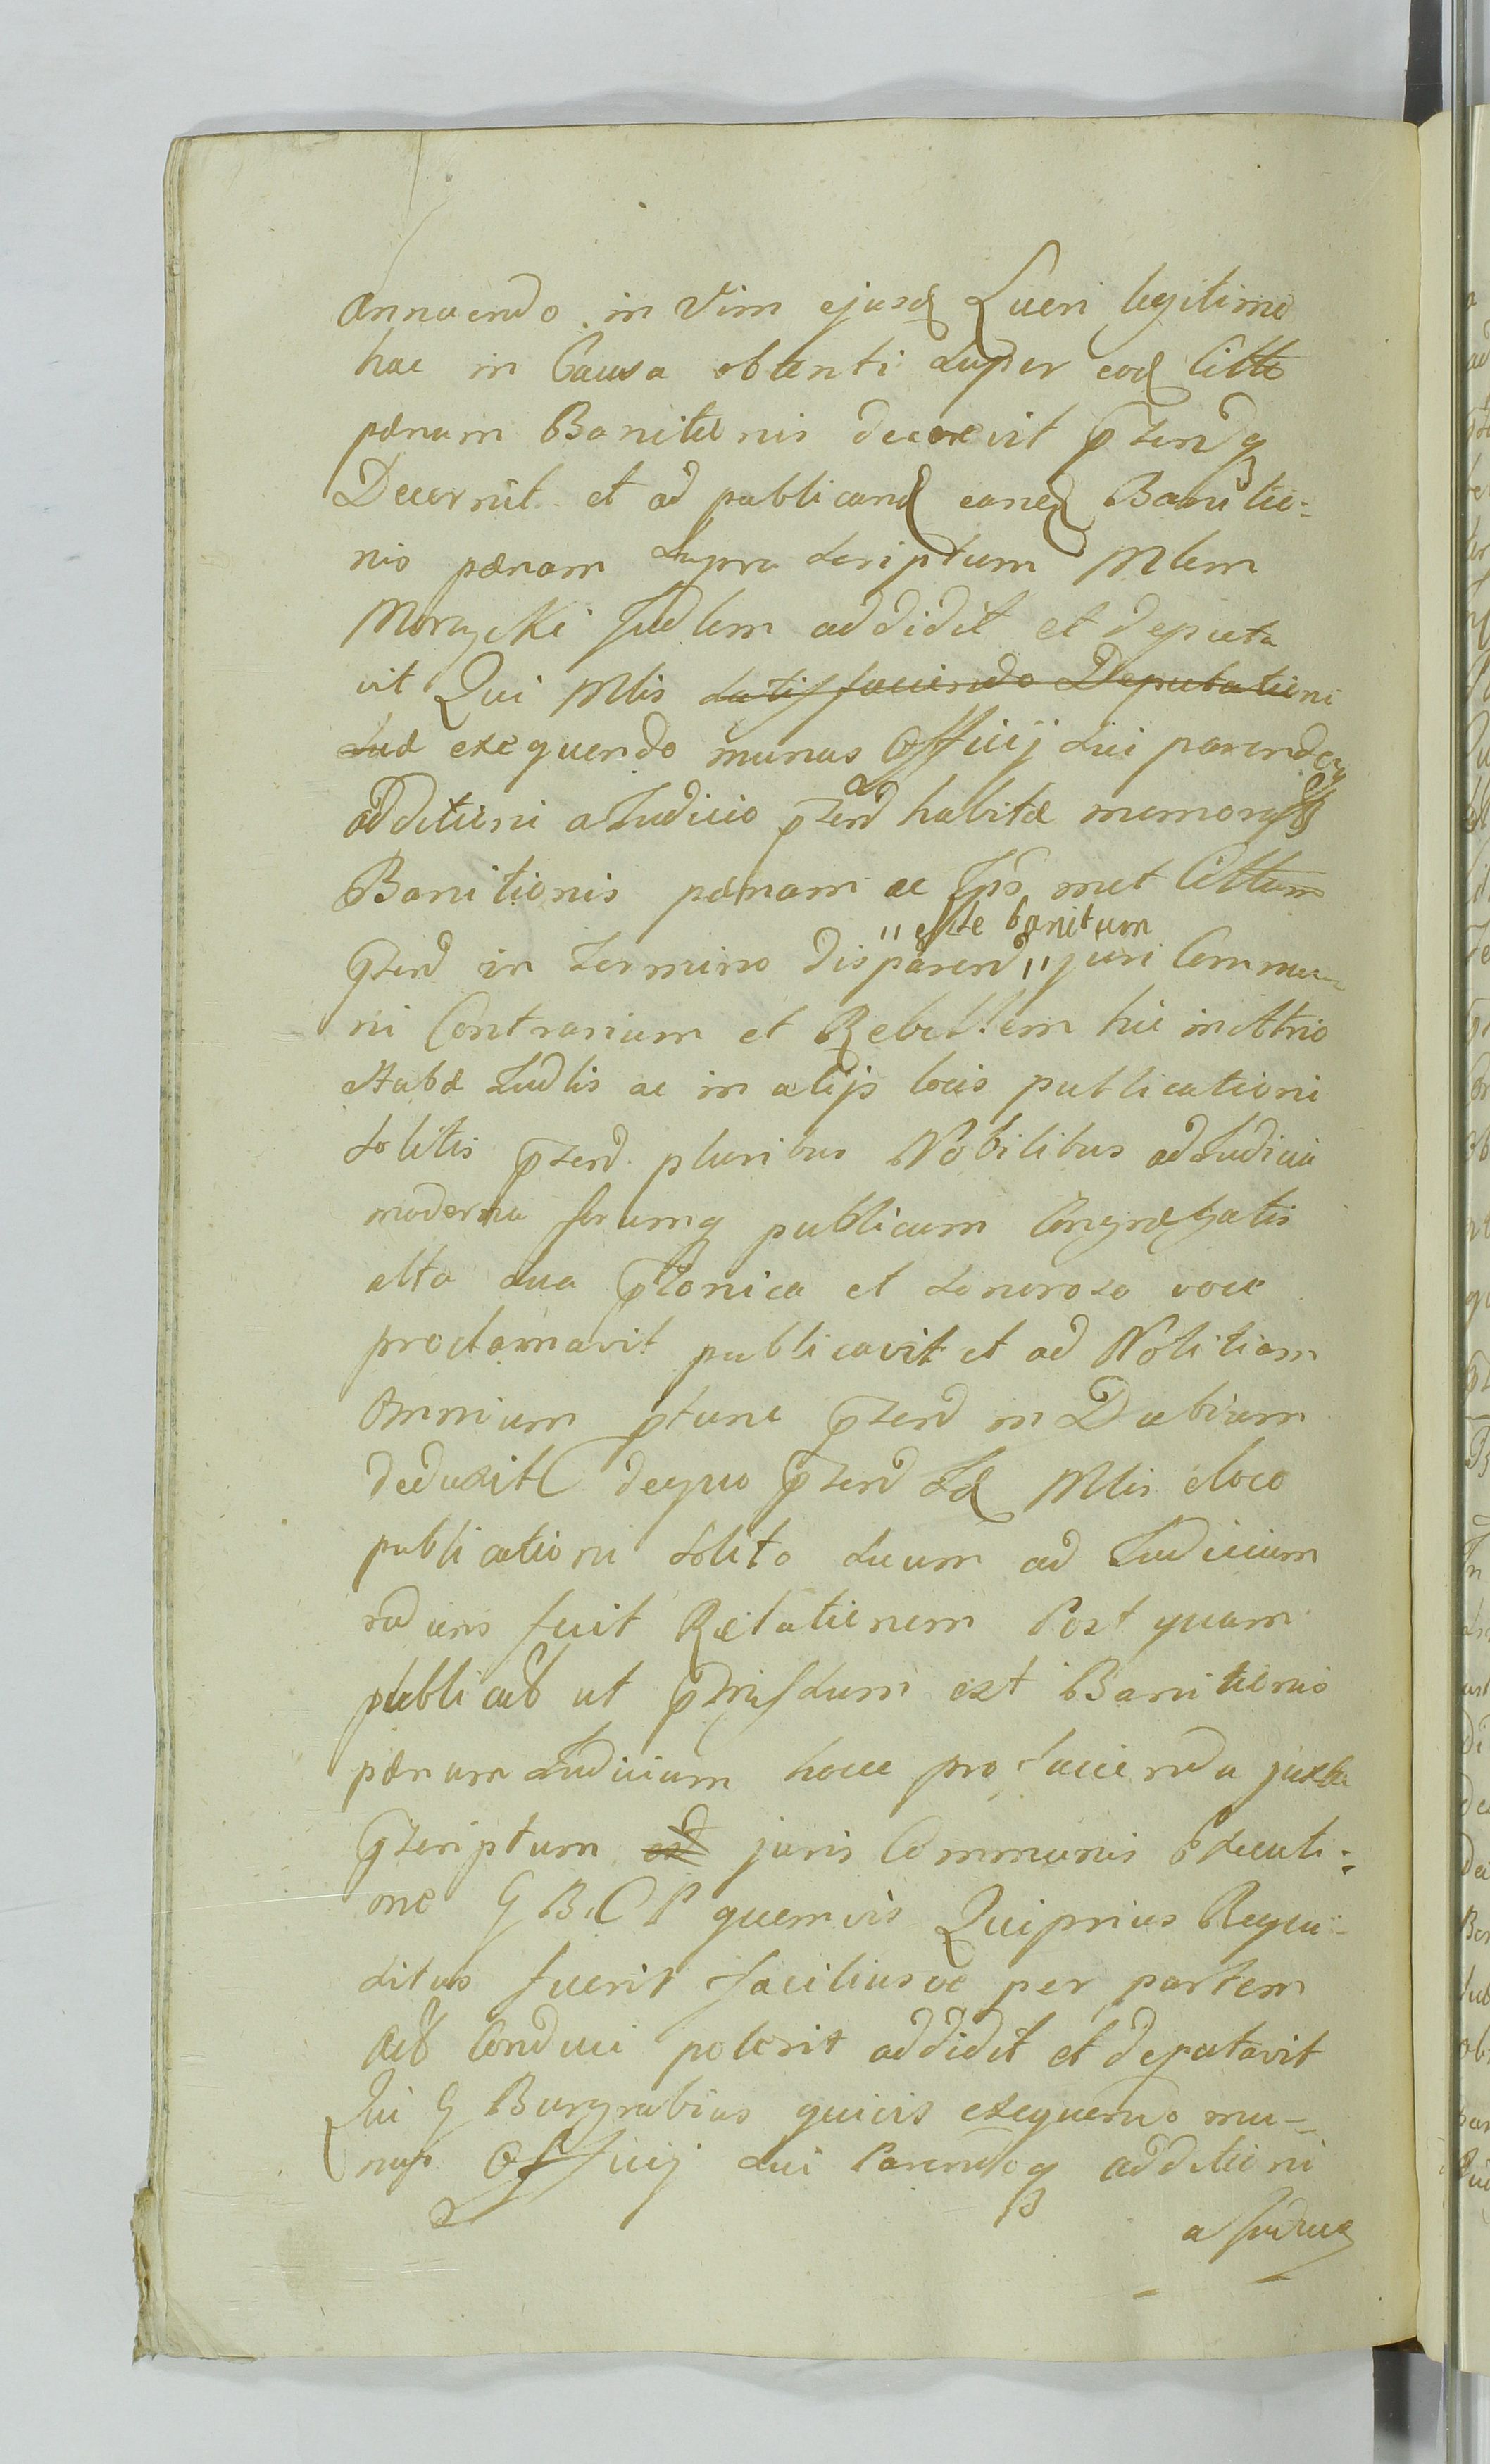 annuendo in Vim ejusd Lucri legitime
hac in Causa obtenti super eod Citto
pænam Banitionis decrevit pzend q
Decernit et ad publicand eand Banitio-
nis pænam supra scriptum Mlem
Morzycki Judlem addidit et deputa
vit Qui Mlis satisfaciendo Deputationi
suæ exequendo munus Officij sui parendoq
additioni a Judicio pzend habitæ memorat
Banitionis pænam ac Ips met Cittum
pzend in termino disparend " juri Commu-
" esse banitum
ni Contrarium et Rebellem hic in Atrio
Stabæ Judlis ac in alijs locis publicationi
solitis pzend pluribus Nobilibus ad Judicia
moderna forumq publicum Congregatis
alta sua pConica et sonorosa voce
proclamavit publicavit et ad Notitiam
Omnium ptunc pzend in Dubium
deduxit dequo pzend Id Mlis eloco
publicationi solito suum ad Judicium
rediens fecit Relationem Postquam
publicat ut pmissum est Banitionis
pænam Judicium hocce pro facienda juxta
pzcriptum est juris Communis Executi-
one G B. C P quemvis Qui prius Requi-
situs fuerit faciliusve per partem
Act Conduci poterit addidit et deputavit
Qui G Burgrabius quivis exequendo mu-
nus Officij sui Parendoq additioni
a Judicio